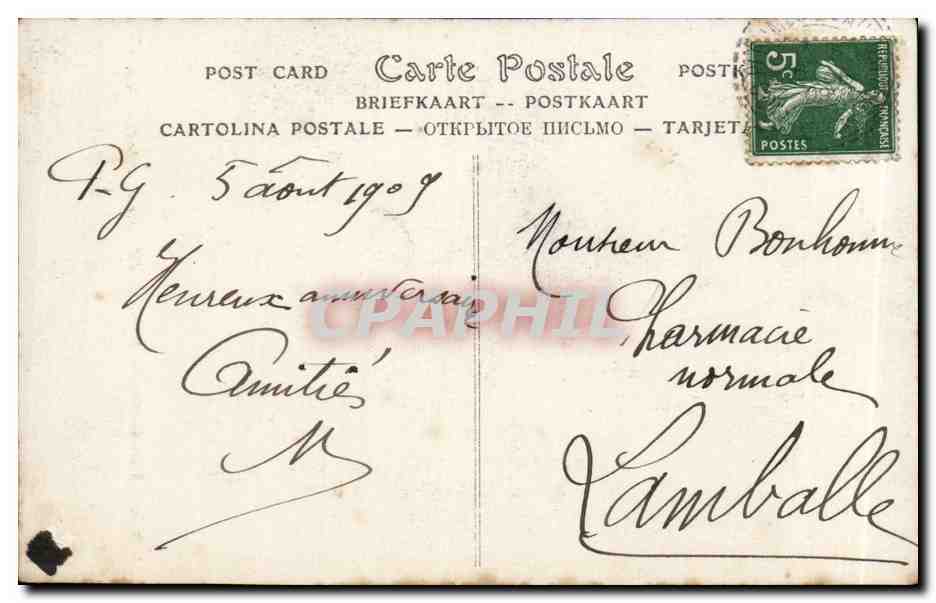 POST CARD Carte Postale POSTK
BRIEFKAART -- POSTKAART
CARTOLINA POSTALE — ОТКРЫТОЕ ПИСЬМО — TARJETA
REPUBLIQUE FRANÇAISE
5c
POSTES
P-G. 5 âout 1909
Heureux anniversaire
Amitiés
M
Monsieur Bonhomme
Pharmacie
normale
Lamballe
CPAPHIL